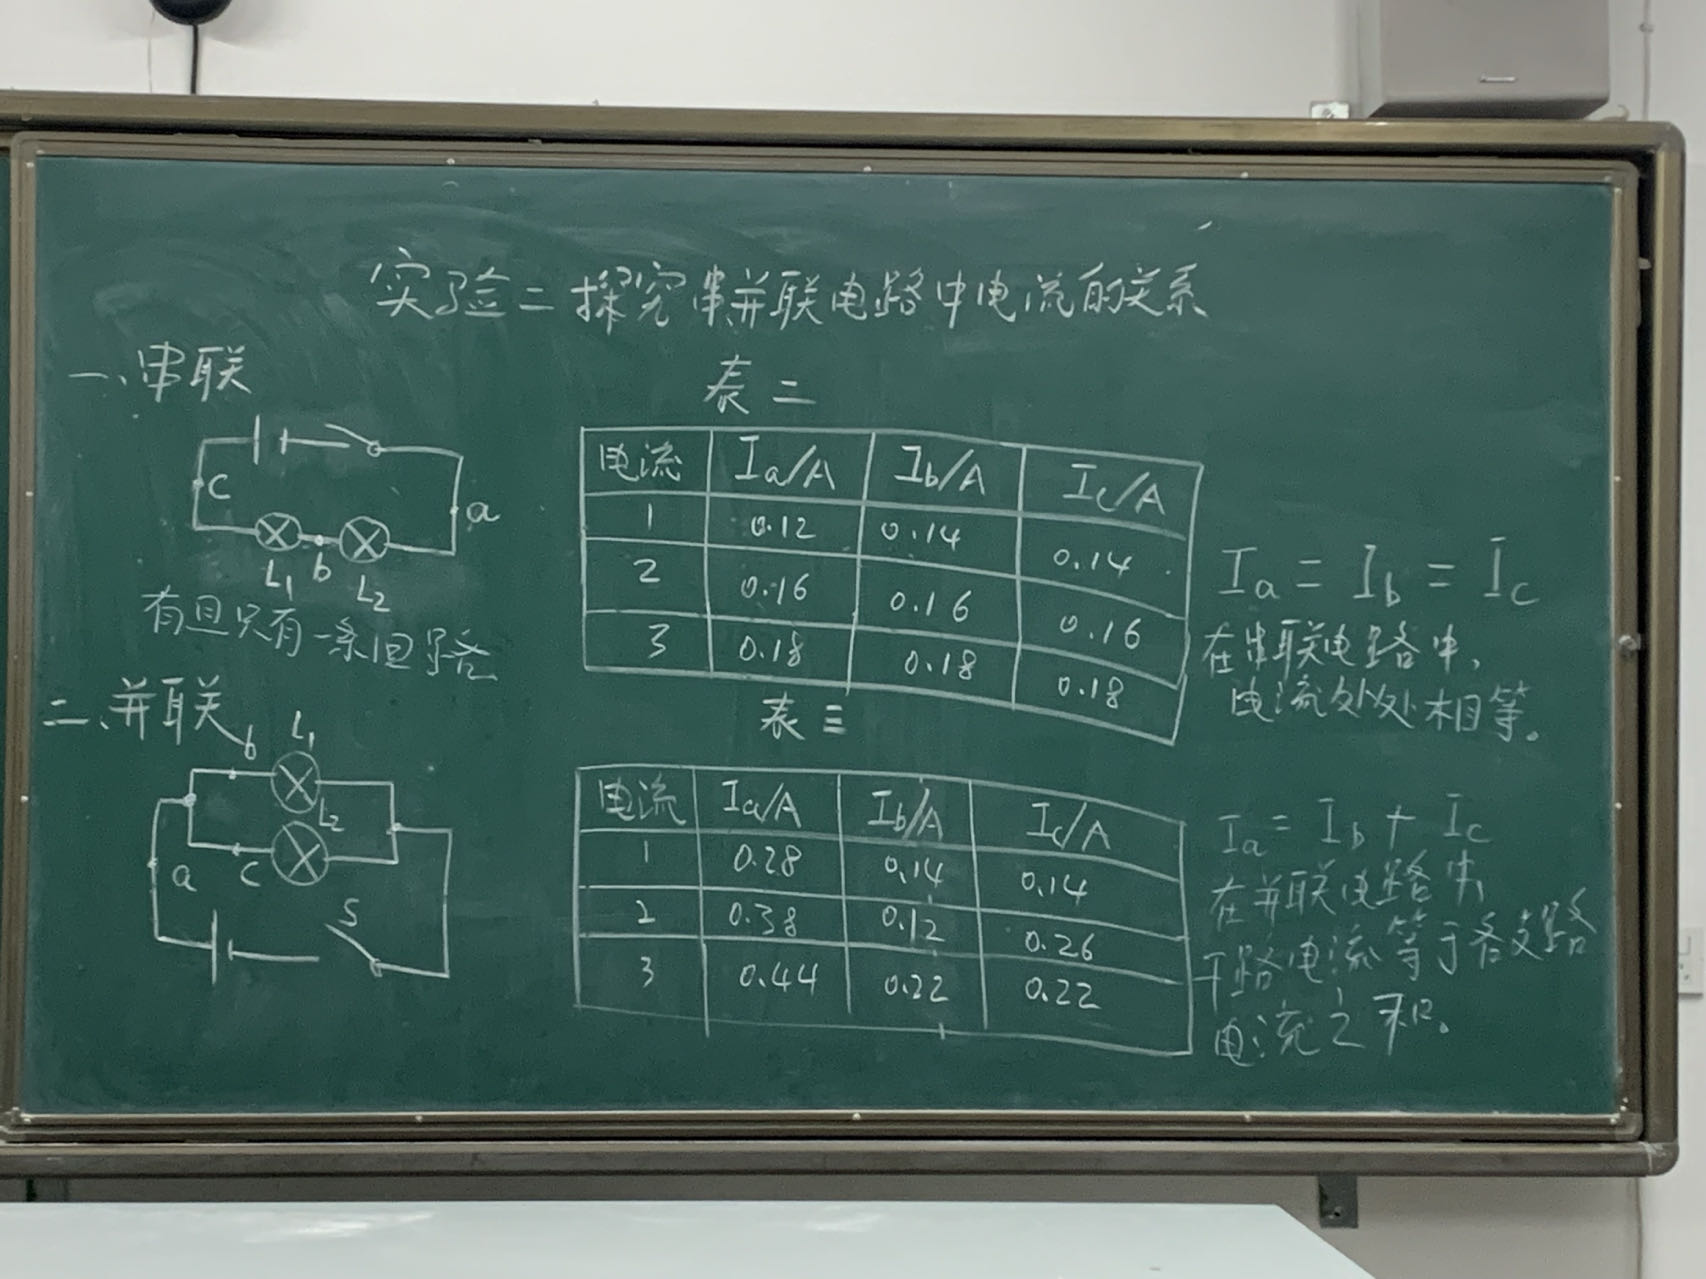 实验二 探究串并联电路中电流的关系
一、串联
C
a
L₁ b L₂
有且只有一条回路
表二
电流 Ia/A Ib/A Ic/A
1 0.12 0.14 0.14
2 0.16 0.16 0.16
3 0.18 0.18 0.18
Ia = Ib = Ic
在串联电路中,
电流处处相等。
二、并联
b L₁
L₂
a C
S
表三
电流 Ia/A Ib/A Ic/A
1 0.28 0.14 0.14
2 0.38 0.12 0.26
3 0.44 0.22 0.22
Ia = Ib + Ic
在并联电路中,
干路电流等于各支路
电流之和。